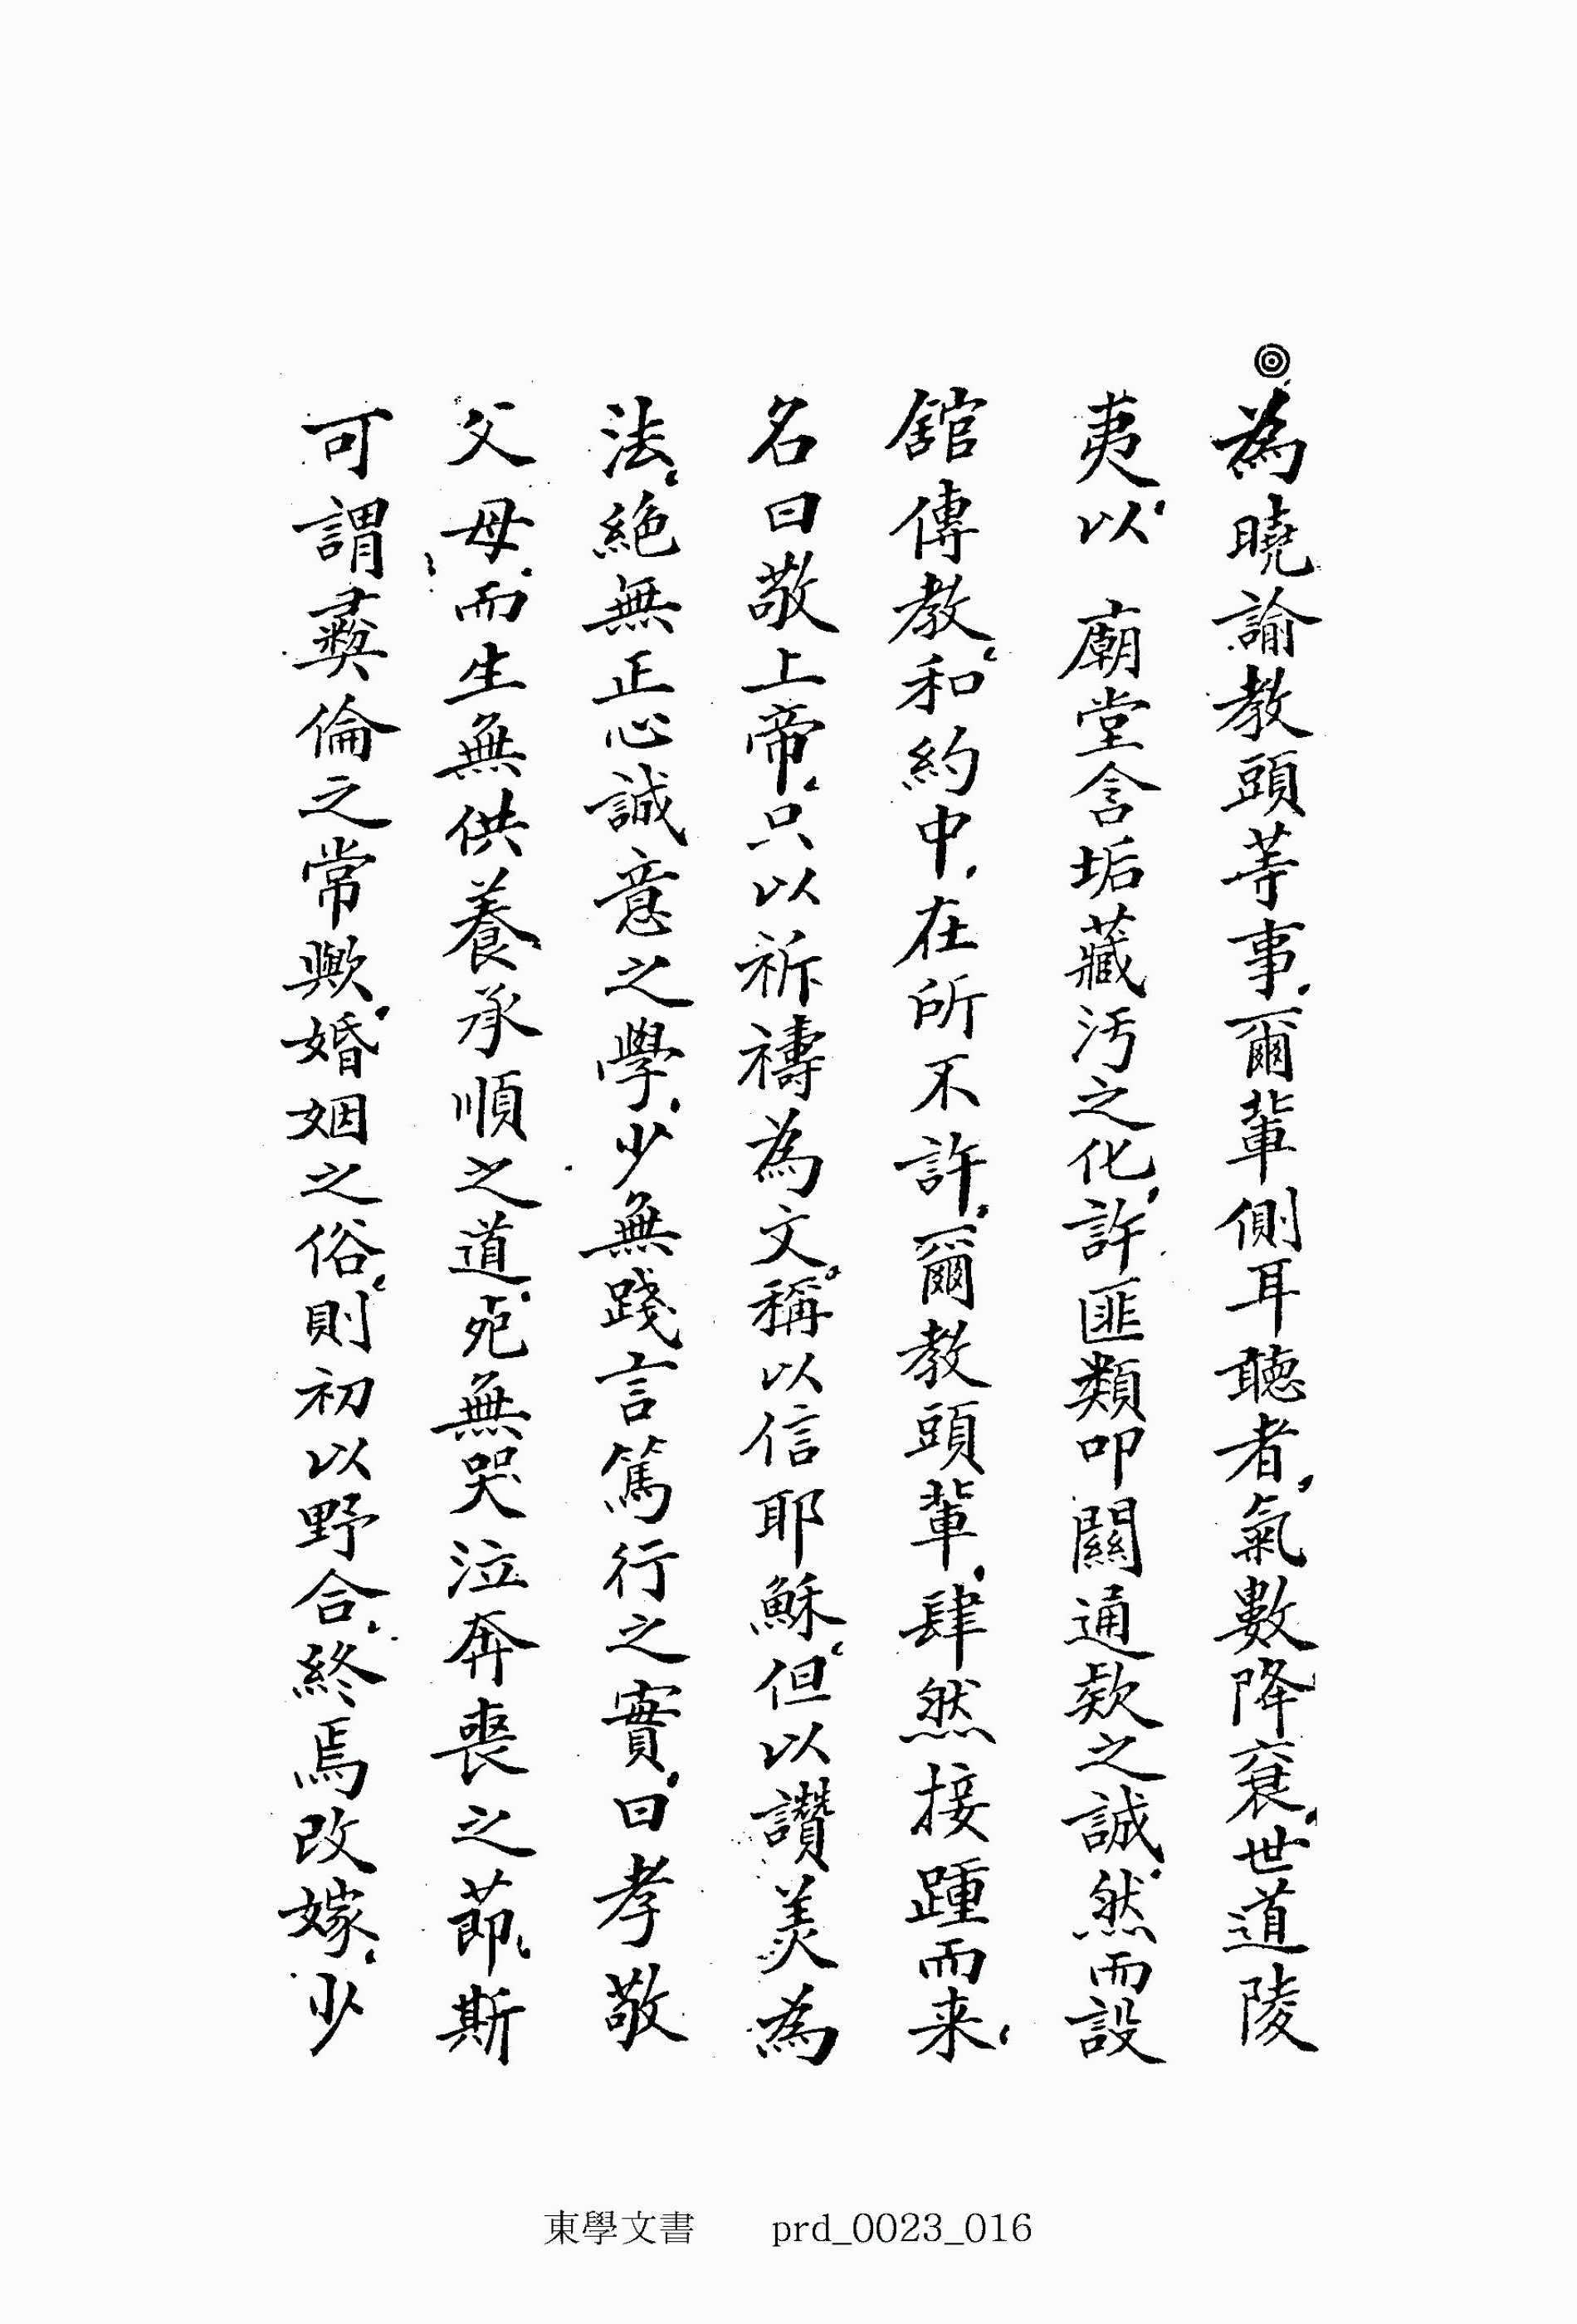 ◎為曉諭教頭等事爾輩側耳聽者氣數降衰世道陵
夷以 廟堂含垢藏汚之化許匪類叩關通欵之誠然而設
舘傳教和約中在所不許爾教頭輩肆然接踵而来
名曰敬上帝只以祈禱為文稱以信耶穌但以讚美為
法絶無正心誠意之學少無踐言篤行之實曰孝敬
父母而生無供養承順之道死無哭泣奔喪之節斯
可謂彛倫之常歟婚姻之俗則初以野合終焉改嫁少
東學文書 prd_0023_016